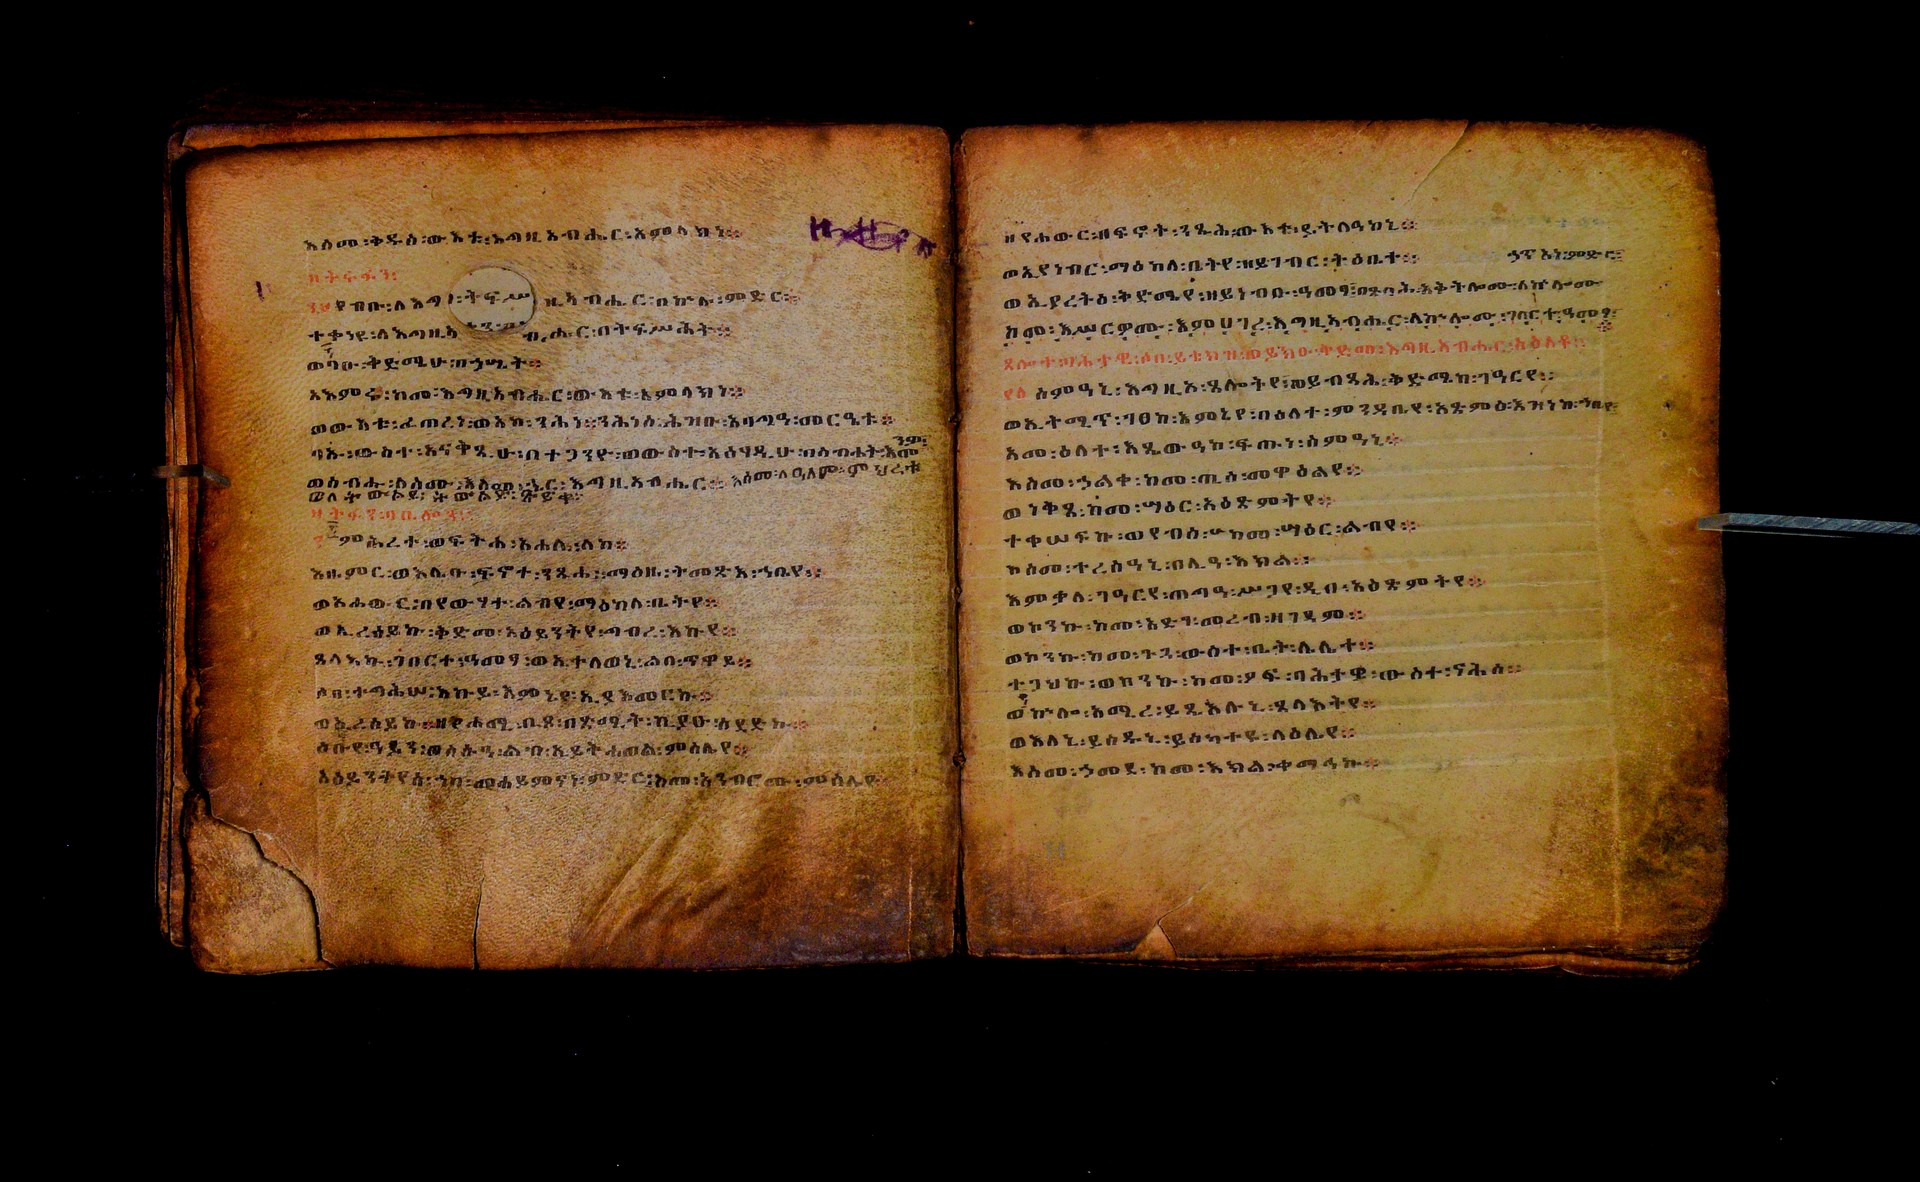 እስመ፡ቅዱስ፡ውእቱ፡እግዚአብሔር፡አምላክነ።
የብቡ፡ለእግዚአብሔር፡በኵሉ፡ምድር።
ተቀነዩ፡ለእግዚአብሔር፡በትፍሥሕት።
ወባኡ፡ቅድሜሁ፡በኃሤት።
አእምሩ፡ከመ፡እግዚአብሔር፡ውእቱ፡አምላክነ።
ወውእቱ፡ፈጠረነ፡ወአኮ፡ንሕነ፡ንሕነሰ፡ሕዝቡ፡አባግዓ፡መርዔቱ።
ባኡ፡ውስተ፡አናቅጺሁ፡በተጋንዮ፡ወውስተ፡አዕፃዲሁ፡በስብሐት፡
ወሰብሑ፡ለስሙ፡እስመ፡ኄር፡እግዚአብሔር። እስመ፡ለዓለም፡ምሕረቱ
ወለትውልደ፡ትውልድ፡ጽድቁ።
ምሕረተ፡ወፍትሐ፡አሐሊ፡ለከ።
እዜምር፡ወእሌቡ፡ፍኖተ፡ንጹሕ፡ማዕዜ፡ትመጽእ፡ኀቤየ።
ወአሐውር፡በየውሃተ፡ልብየ፡ማዕከለ፡ቤትየ።
ወኢረሰይኩ፡ቅድመ፡አዕይንትየ፡ግብረ፡እኩየ።
ጸላእኩ፡ገበርተ፡ዓመፃ፡ወኢተለወኒ፡ልብ፡ጠዋይ።
ሶበ፡ተግሕሠ፡እኩይ፡እምኔየ፡ኢያእመርኩ።
ወኢረሰይኩ፡ዘየሐሚ፡ቢጾ፡በጽሚት፡ኪያሁ፡ሰደድኩ።
ዕቡየ፡ዓይን፡ወስሱዓ፡ልብ፡ኢይትሐወል፡ምስሌየ።
አዕይንትየሰ፡ኀበ፡መሃይምናነ፡ምድር፡ከመ፡አንብሮሙ፡ምስሌየ።
ዘየሐውር፡በፍኖት፡ንጹሕ፡ውእቱ፡ይትለዓከኒ።
ወኢይነብር፡ማዕከለ፡ቤትየ፡ዘይገብር፡ትዕቢተ።
ወኢያረትዕ፡ቅድሜየ፡ዘይነብብ፡ዓመፃ፡በጽባሕ፡እቅትሎሙ፡ለኵሎሙ፡ኃጥኣነ፡ምድር።
ከመ፡እሠርዎሙ፡እምሀገረ፡እግዚአብሔር፡ለኵሎሙ፡ገበርተ፡ዓመፃ።
ጸሎተ፡ባሕታዊ፡ሶበ፡ይቴክዝ፡ወይክዑ፡ቅድመ፡እግዚአብሔር፡ስእለቶ።
ስምዓኒ፡እግዚኦ፡ጸሎትየ፡ወይብጻሕ፡ቅድሜከ፡ገዓርየ።
ወኢትሚጥ፡ገፀከ፡እምኔየ፡በዕለተ፡ምንዳቤየ፡አጽምዕ፡እዝነከ፡ኀቤየ
አመ፡ዕለተ፡እጼውዓከ፡ፍጡነ፡ስምዓኒ።
እስመ፡ኃልቀ፡ከመ፡ጢስ፡መዋዕልየ።
ወነቅጸ፡ከመ፡ሣዕር፡አዕጽምትየ።
ተቀሠፍኩ፡ወየብሰ፡ከመ፡ሣዕር፡ልብየ።
እስመ፡ተረስዓኒ፡በሊዓ፡እክል።
እምቃለ፡ገዓርየ፡ጠግዓ፡ሥጋየ፡ዲበ፡አዕጽምትየ።
ወኮንኩ፡ከመ፡አድገ፡መረብ፡ዘገዳም።
ወኮንኩ፡ከመ፡ጉጓ፡ውስተ፡ቤት፡ሌሊተ።
ተጋህኩ፡ወኮንኩ፡ከመ፡ዖፍ፡ባሕታዊ፡ውስተ፡ናሕስ።
ወኵሎ፡አሚረ፡ይጼእሉኒ፡ጸላእትየ።
ወእለኒ፡ይሴድዱኒ፡ይስካተዩ፡ላዕሌየ።
እስመ፡ኃመደ፡ከመ፡እክል፡ቀማሕኩ።